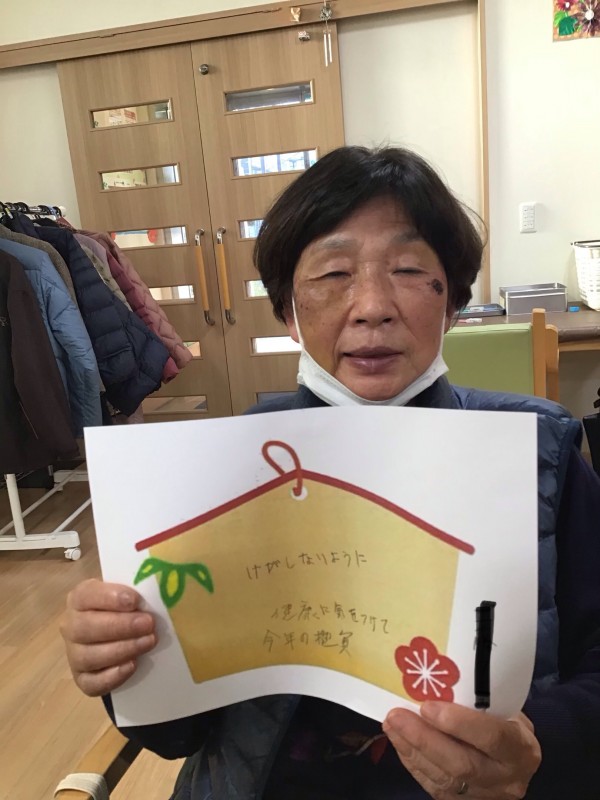 けがしないように
健康に気をつけて
今年の抱負